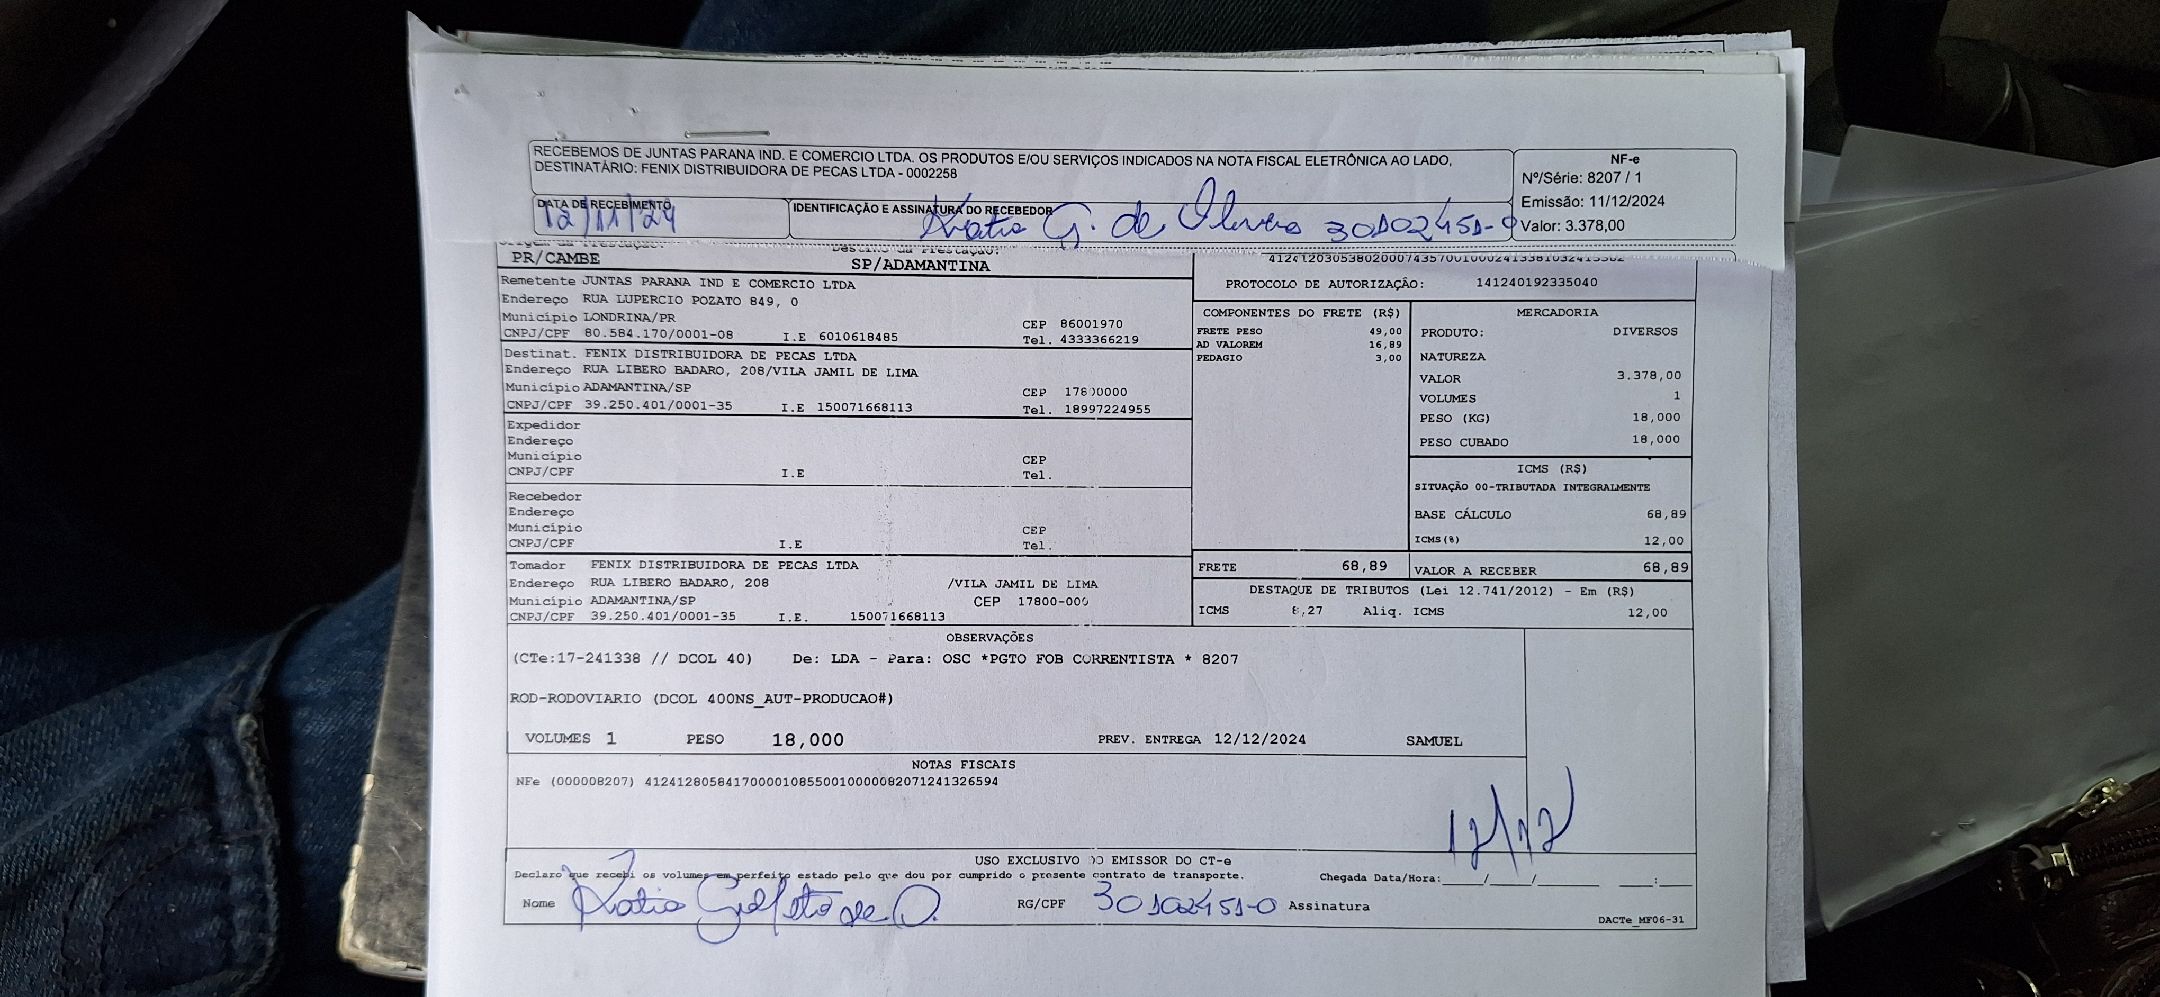 RECEBEMOS DE JUNTAS PARANA IND. E COMERCIO LTDA. OS PRODUTOS E/OU SERVIÇOS INDICADOS NA NOTA FISCAL ELETRÔNICA AO LADO,
DESTINATÁRIO: FENIX DISTRIBUIDORA DE PECAS LTDA - 0002258
NF-e
Nº/Série: 8207 / 1
Emissão: 11/12/2024
Valor: 3.378,00
DATA DE RECEBIMENTO
12/11/24
IDENTIFICAÇÃO E ASSINATURA DO RECEBEDOR
Katia G. de Oliveira 30102451-0
Destino da Prestação:
PR/CAMBE SP/ADAMANTINA
PROTOCOLO DE AUTORIZAÇÃO: 141240192335040
Remetente JUNTAS PARANA IND E COMERCIO LTDA
Endereço RUA LUPERCIO POZATO 849, 0
Município LONDRINA/PR CEP 86001970
CNPJ/CPF 80.584.170/0001-08 I.E 6010618485 Tel. 4333366219
Destinat. FENIX DISTRIBUIDORA DE PECAS LTDA
Endereço RUA LIBERO BADARO, 208/VILA JAMIL DE LIMA
Município ADAMANTINA/SP CEP 17800000
CNPJ/CPF 39.250.401/0001-35 I.E 150071668113 Tel. 18997224955
Expedidor
Endereço
Município CEP
CNPJ/CPF I.E Tel.
Recebedor
Endereço
Município CEP
CNPJ/CPF I.E Tel.
Tomador FENIX DISTRIBUIDORA DE PECAS LTDA
Endereço RUA LIBERO BADARO, 208 /VILA JAMIL DE LIMA
Município ADAMANTINA/SP CEP 17800-000
CNPJ/CPF 39.250.401/0001-35 I.E. 150071668113
COMPONENTES DO FRETE (R$)
FRETE PESO 49,00
AD VALOREM 16,89
PEDAGIO 3,00
MERCADORIA
PRODUTO: DIVERSOS
NATUREZA
VALOR 3.378,00
VOLUMES 1
PESO (KG) 18,000
PESO CUBADO 18,000
ICMS (R$)
SITUAÇÃO 00-TRIBUTADA INTEGRALMENTE
BASE CÁLCULO 68,89
ICMS(%) 12,00
FRETE 68,89 VALOR A RECEBER 68,89
DESTAQUE DE TRIBUTOS (Lei 12.741/2012) - Em (R$)
ICMS 8,27 Aliq. ICMS 12,00
OBSERVAÇÕES
(CTe:17-241338 // DCOL 40) De: LDA - Para: OSC *PGTO FOB CORRENTISTA * 8207
ROD-RODOVIARIO (DCOL 400NS_AUT-PRODUCAO#)
VOLUMES 1 PESO 18,000 PREV. ENTREGA 12/12/2024 SAMUEL
NOTAS FISCAIS
NFe (000008207) 41241280584170000108550010000082071241326594
12/12
USO EXCLUSIVO DO EMISSOR DO CT-e
Declaro que recebi os volumes em perfeito estado pelo que dou por cumprido o presente contrato de transporte. Chegada Data/Hora: ____/____/________ ____:____
Nome Katia de O. RG/CPF 30102451-0 Assinatura
DACTe_MF06-31